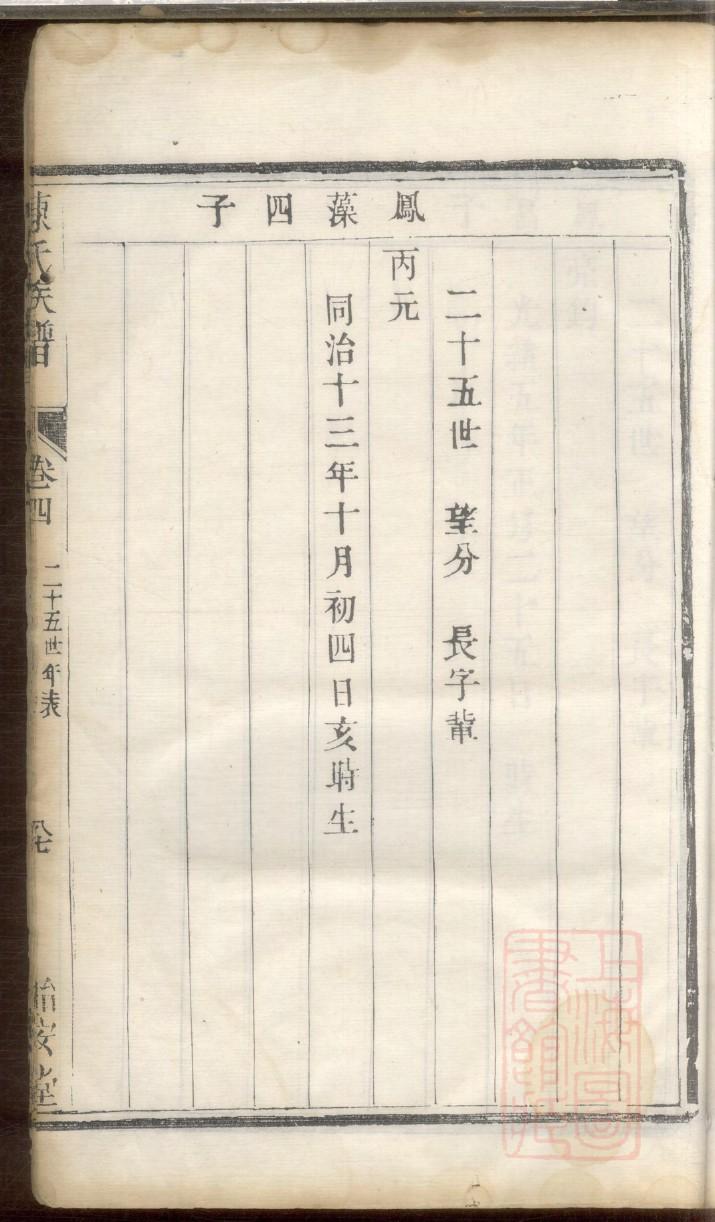 鳳藻四子
二十五世 望分 長字輩
丙元
同治十三年十月初四日亥時生
陳氏族譜
卷四
二十五世年表
上海圖書館藏